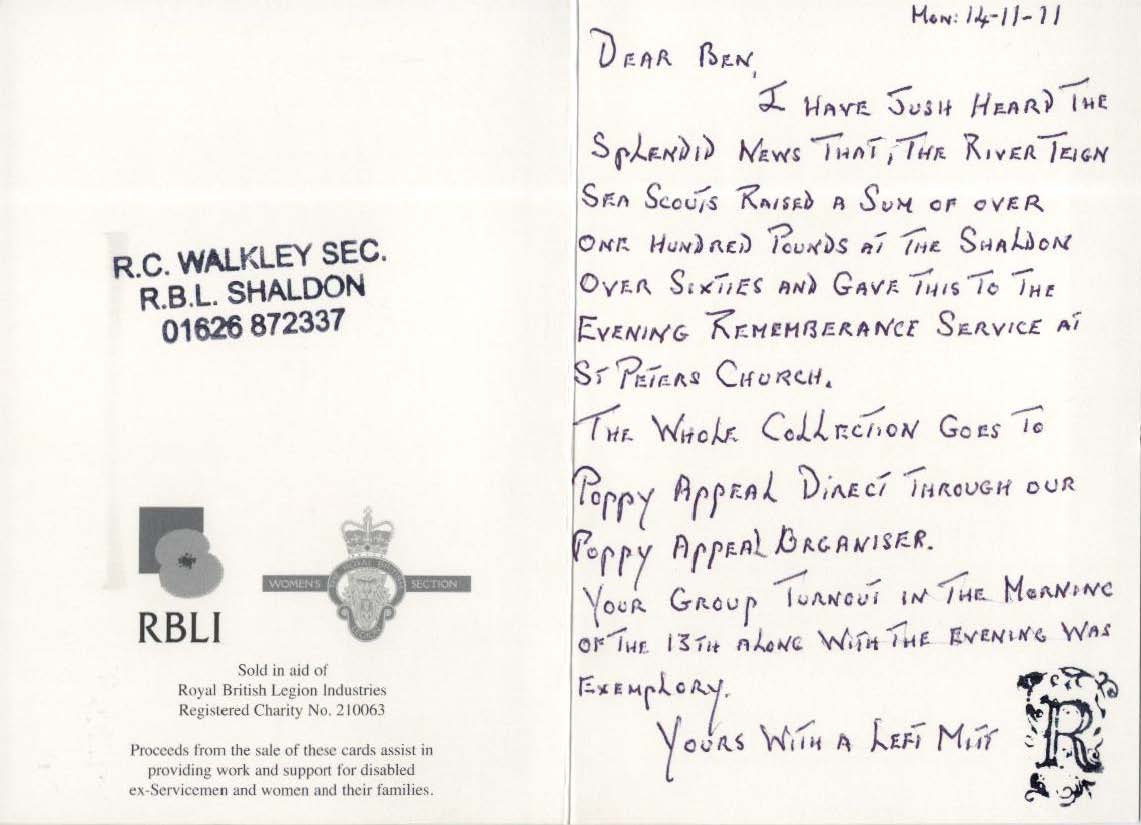 R.C. WALKLEY SEC.
R.B.L. SHALDON
01626 872337
RBLI
WOMEN'S SECTION
Sold in aid of
Royal British Legion Industries
Registered Charity No. 210063
Proceeds from the sale of these cards assist in
providing work and support for disabled
ex-Servicemen and women and their families.
MON: 14-11-11
DEAR BEN,
I HAVE JUSH HEARD THE
SPLENDID NEWS THAT, THE RIVER TEIGN
SEA SCOUTS RAISED A SUM OF OVER
ONE HUNDRED POUNDS AT THE SHALDON
OVER SIXTIES AND GAVE THIS TO THE
EVENING REMEMBERANCE SERVICE AT
ST PETERS CHURCH.
THE WHOLE COLLECTION GOES TO
POPPY APPEAL DIRECT THROUGH OUR
POPPY APPEAL ORGANISER.
YOUR GROUP TURNOUT IN THE MORNING
OF THE 13TH ALONG WITH THE EVENING WAS
EXEMPLORY.
YOURS WITH A LEFT MITT
R